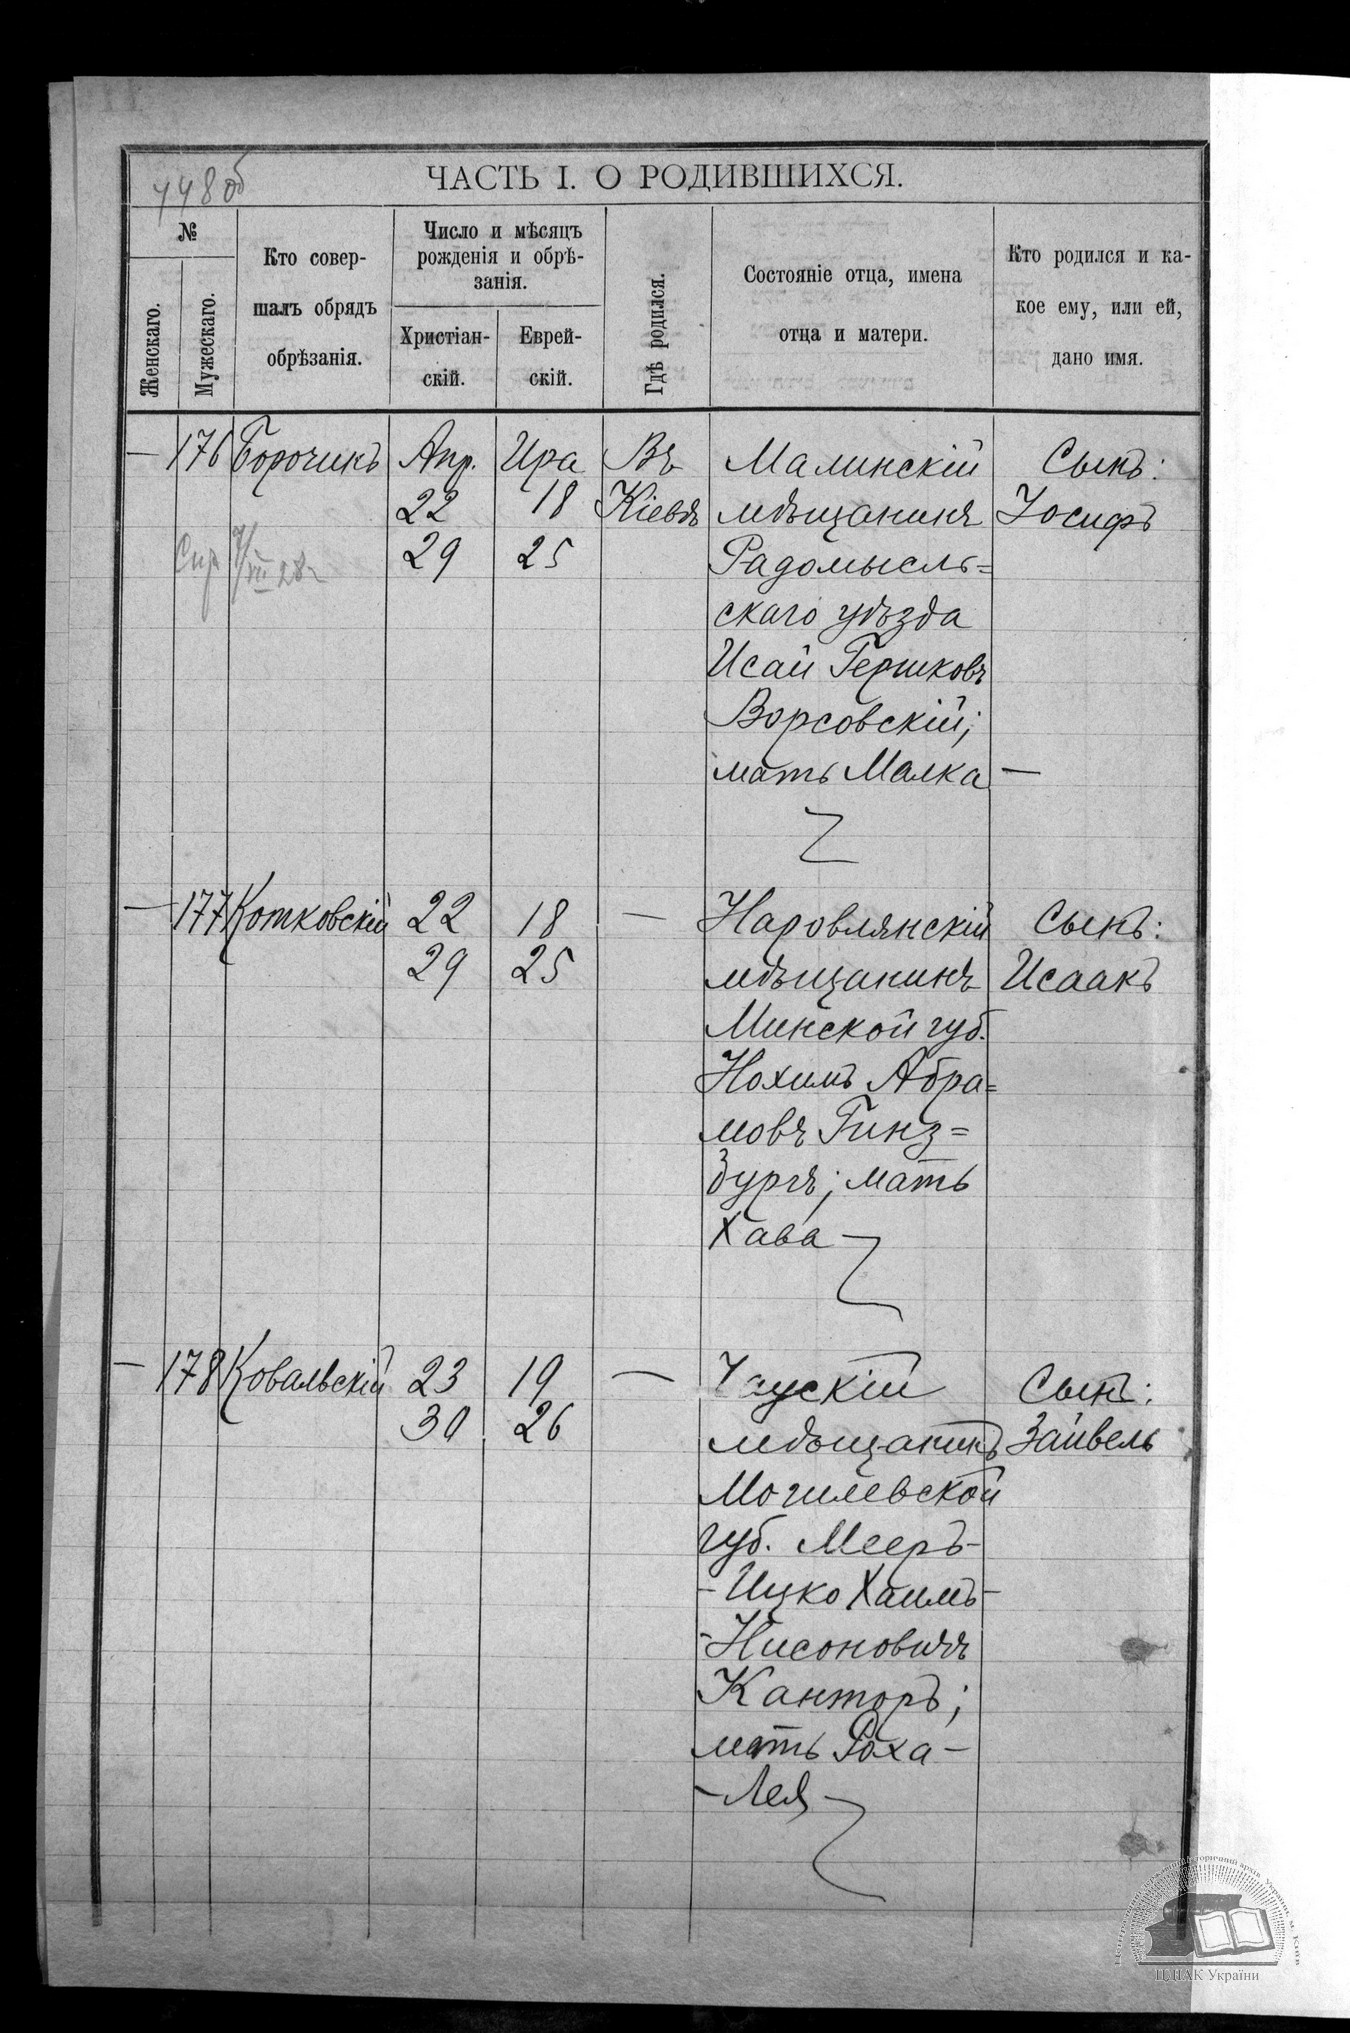 448 об
ЧАСТЬ I. О РОДИВШИХСЯ.
№
Женскаго.
Мужескаго.
Кто совер-
шалъ обрядъ
обрѣзанія.
Число и мѣсяцъ
рожденія и обрѣ-
занія.
Христіан-
скій.
Еврей-
скій.
Гдѣ родился.
Состояніе отца, имена
отца и матери.
Кто родился и ка-
кое ему, или ей,
дано имя.
— 176 Борочикъ Апр. Ира Въ Малинскій Сынъ:
22 18 Кіевѣ мѣщанинъ Іосифъ
29 25 Радомысль=
скаго уѣзда
Исай Гершковъ
Ворсовскій;
мать Малка —
— 177 Котковскій 22 18 — Наровлянскій Сынъ:
29 25 мѣщанинъ Исаакъ
Минской губ.
Нохимъ Абра=
мовъ Гинз=
бургъ; мать
Хава —
— 178 Ковальскій 23 19 — Чаускій Сынъ:
30 26 мѣщанинъ Зайвель
Могилевской
губ. Мееръ-
-Ицко Хаимъ-
-Нисоновичъ
Канторъ;
мать Роха-
-Лея —
ЦДІАК України